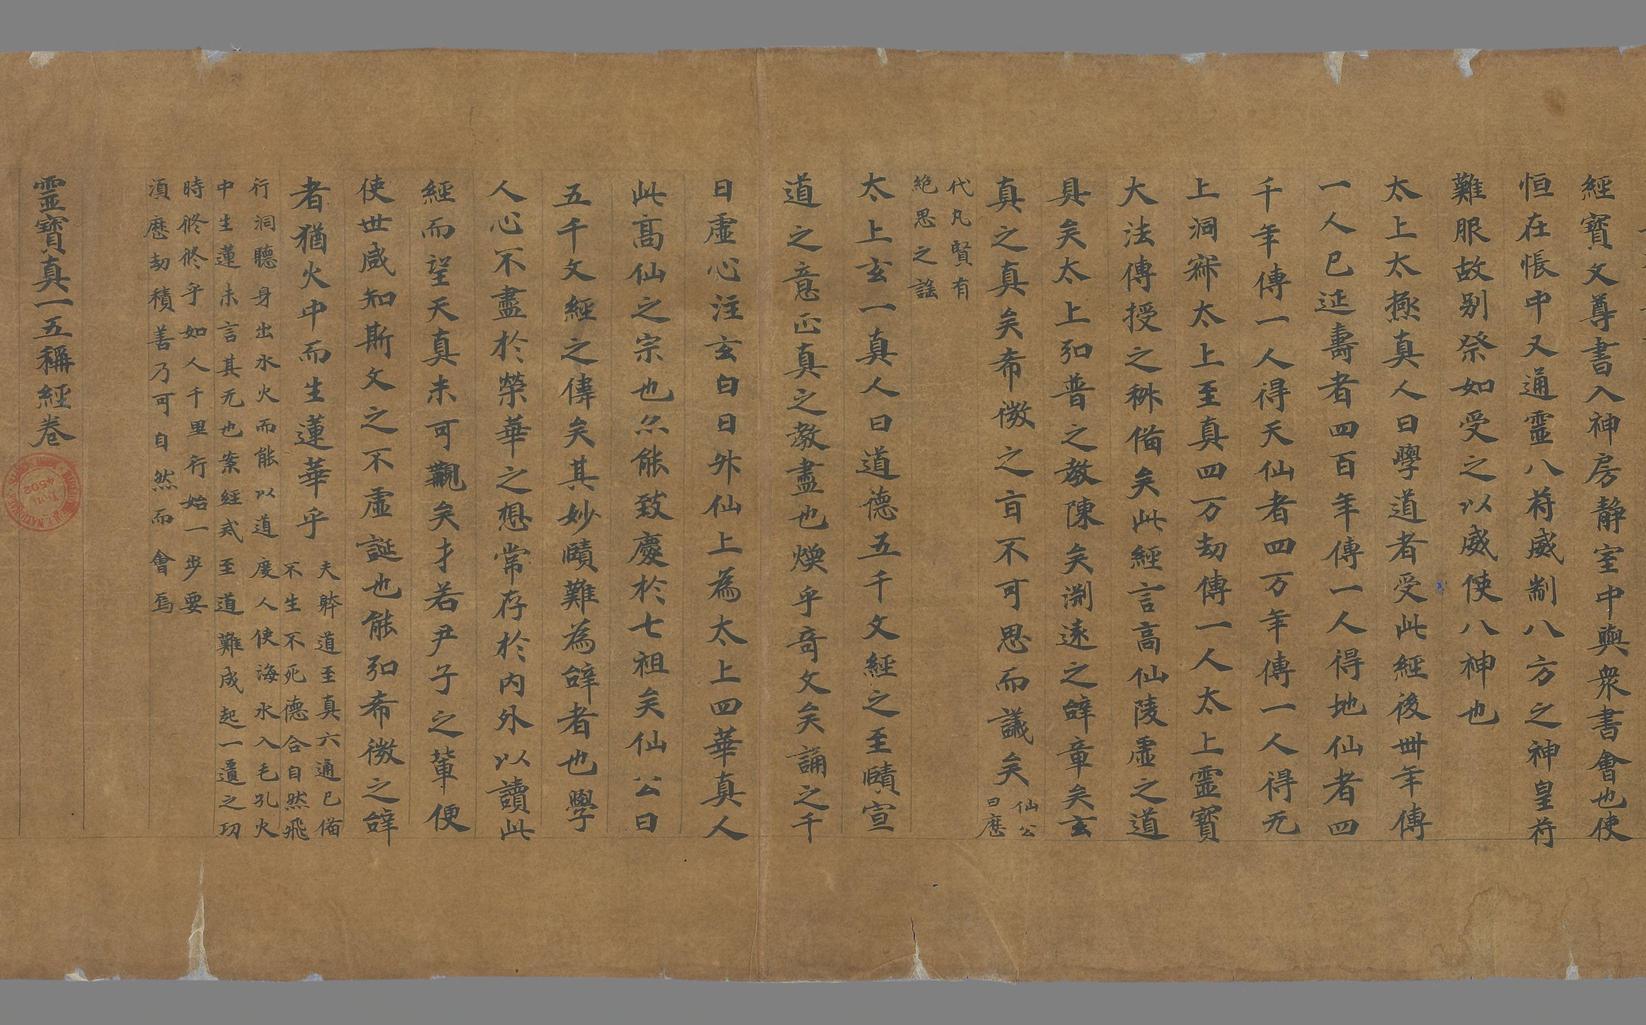 經寶文尊書入神房靜室中與衆書會也使
恒在悵中又通靈八符威制八方之神皇符
難服故别祭如受之以威使八神也
太上太極真人曰學道者受此經後卌年傳
一人已延壽者四百年傳一人得地仙者四
千年傳一人得天仙者四万年傳一人得元
上洞寂太上至真四万劫傳一人太上靈寶
大法傳授之科俻矣此經言高仙陵虛之道
具矣太上弘普之教陳矣渊遠之辝章矣玄
真之真矣希微之音不可思而議矣
仙公
曰歷
代凡賢有
絶思之謡
太上玄一真人曰道德五千文經之至賾宣
道之意正真之教盡也煥乎奇文矣誦之千
日虛心注玄白日升仙上為太上四華真人
此高仙之宗也亦能致慶於七祖矣仙公曰
五千文經之偉矣其妙賾難為辝者也學
人心不盡於榮華之想常存於内外以讀此
經而望天真未可觀矣才若尹子之軰便
使世咸知斯文之不虛誕也能弘希微之辝
者猶火中而生蓮華乎
夫斈道至真六通已俻
不生不死德合自然飛
行洞聽身出水火而能以道度人使海水入毛孔火
中生蓮未言其元也案經戒至道難成起一遺之功
時修修乎如人千里行始一步要
湏歷劫積善乃可自然而會焉
靈寶真一五稱經卷
4502